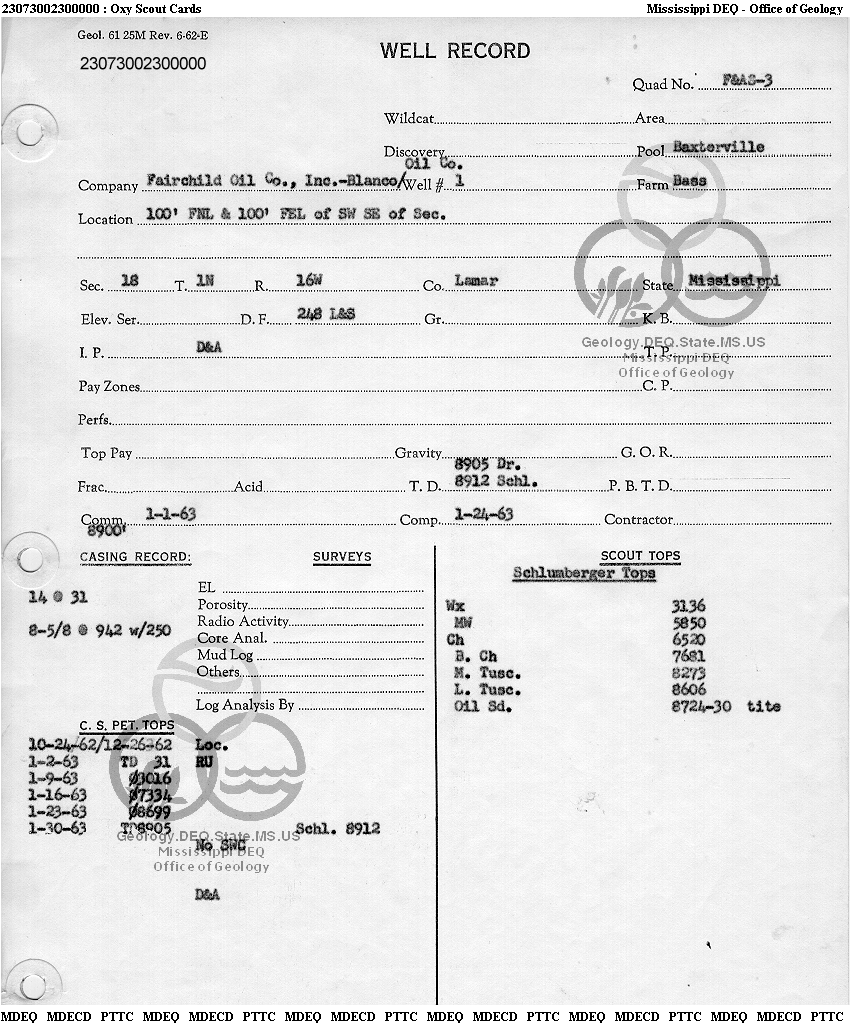 23073002300000 : Oxy Scout Cards Mississippi DEQ - Office of Geology
Geol. 61 25M Rev. 6-62-E
23073002300000
WELL RECORD
Quad No. F&AS-3
Wildcat Area
Discovery Pool Baxterville
Oil Co.
Company Fairchild Oil Co., Inc.-Blanco/Well # 1 Farm Bass
Location 100' FNL & 100' FEL of SW SE of Sec.
Sec. 18 T. 1N R. 16W Co. Lamar State Mississippi
Elev. Ser. D. F. 248 L&S Gr. K. B.
Geology.DEQ.State.MS.US
I. P. D&A T. P.
Mississippi DEQ
Office of Geology
Pay Zones C. P.
Perfs.
Top Pay Gravity G. O. R.
8905 Dr.
Frac. Acid T. D. 8912 Schl. P. B. T. D.
Comm. 1-1-63 Comp. 1-24-63 Contractor
8900'
CASING RECORD: SURVEYS SCOUT TOPS
Schlumberger Tops
14 @ 31
8-5/8 @ 942 w/250
EL
Porosity
Radio Activity
Core Anal.
Mud Log
Others
Log Analysis By
Wx 3136
MW 5850
Ch 6520
B. Ch 7681
M. Tusc. 8273
L. Tusc. 8606
Oil Sd. 8724-30 tite
C. S. PET. TOPS
10-24-62/12-26-62 Loc.
1-2-63 TD 31 RU
1-9-63 Ø3016
1-16-63 Ø7334
1-23-63 Ø8699
1-30-63 TD8905 Schl. 8912
Geology.DEQ.State.MS.US
No SWC
Mississippi DEQ
Office of Geology
D&A
MDEQ MDECD PTTC MDEQ MDECD PTTC MDEQ MDECD PTTC MDEQ MDECD PTTC MDEQ MDECD PTTC MDEQ MDECD PTTC